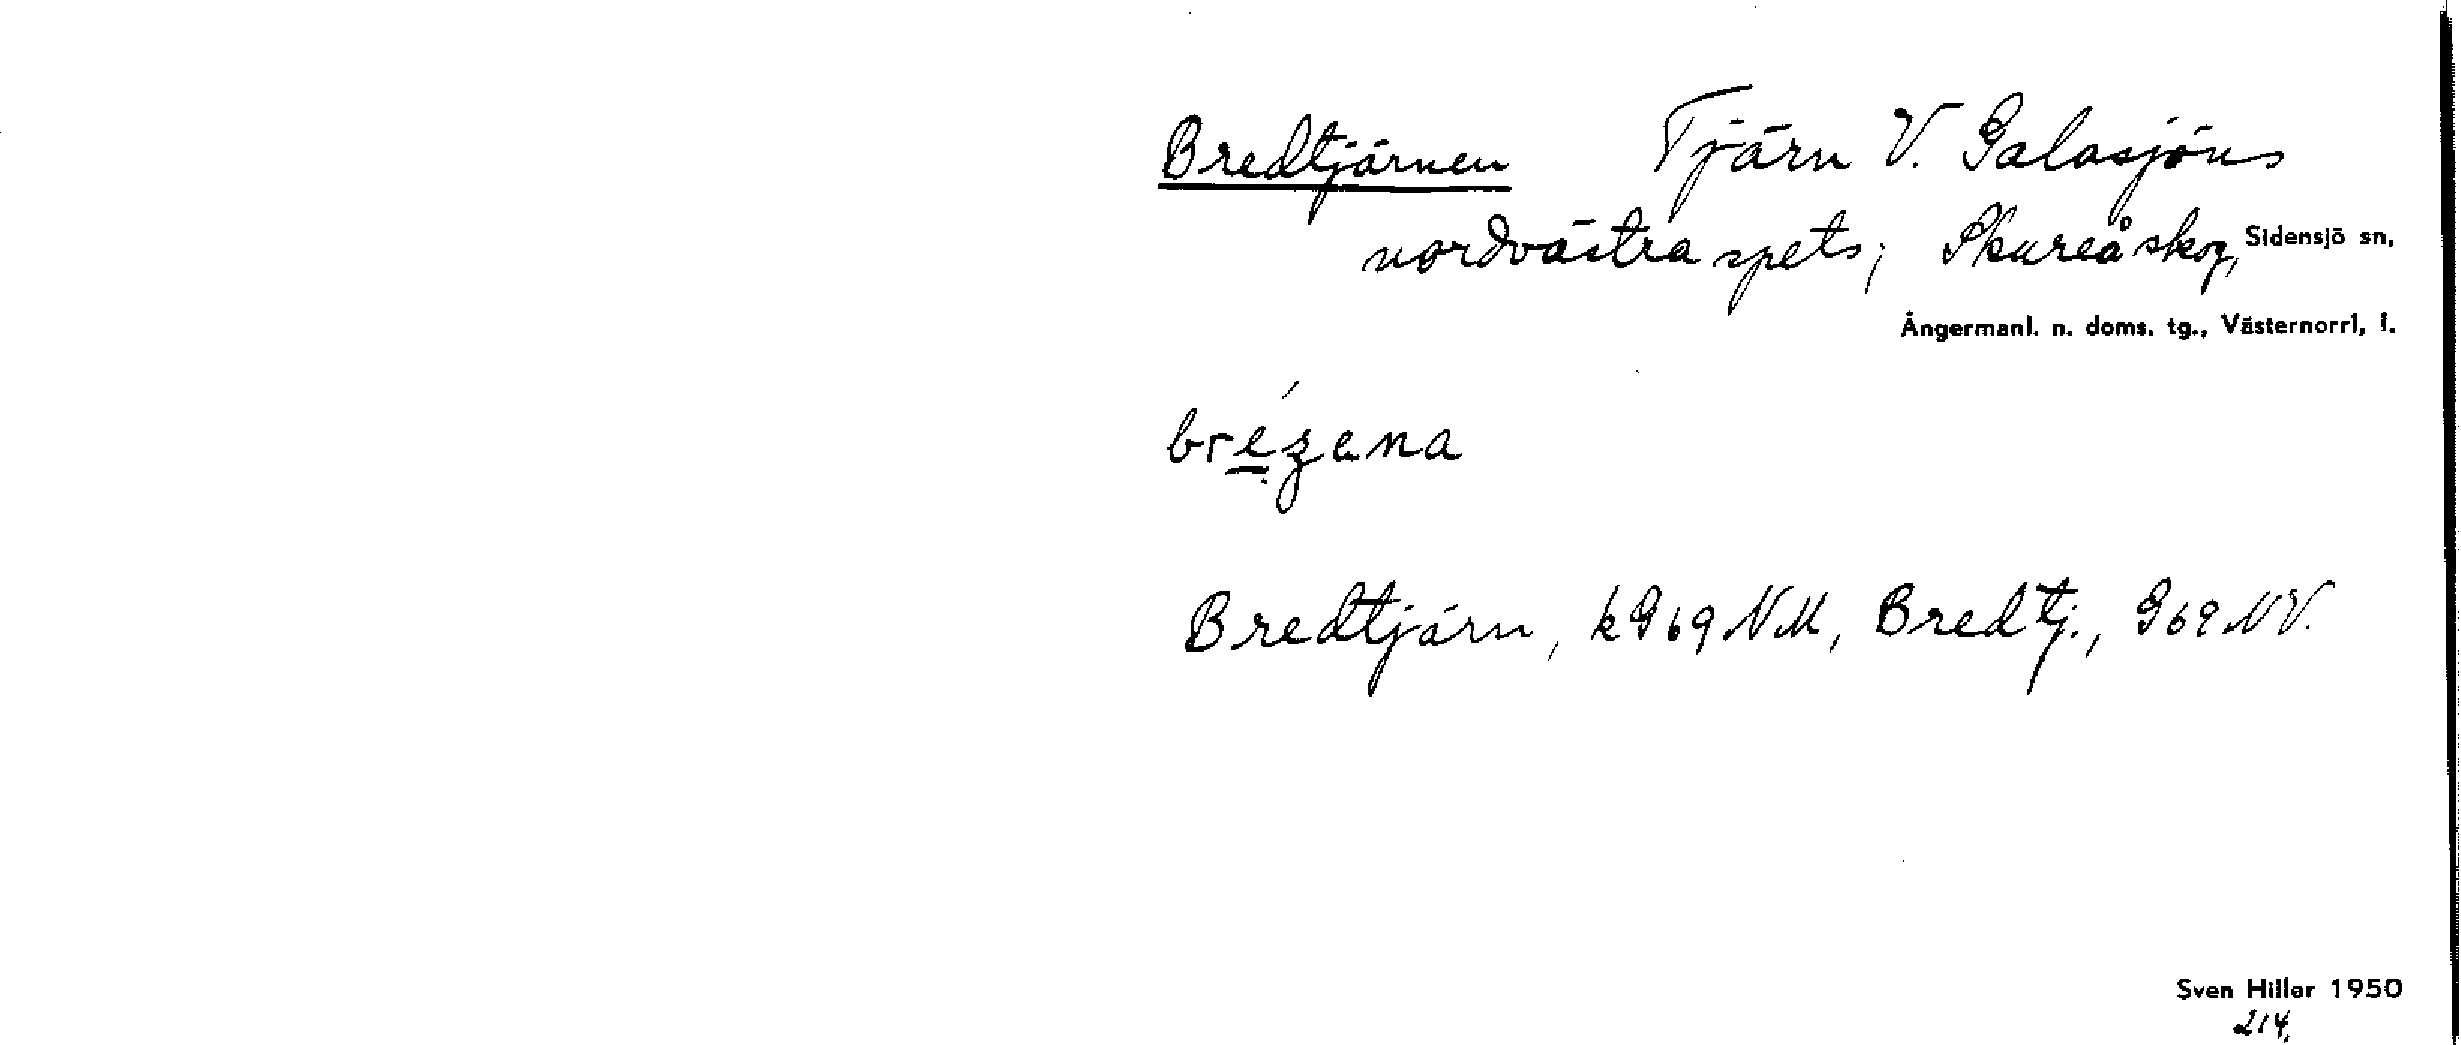 Bredtjärnen Tjärn V. Galasjöns
nordvästra spets; Skureåskog, Sidensjö sn,
Ångermanl. n. doms. tg., Västernorrl, l.
Bredtjärn, k G69 NM, Bredtj., G69 NV.
Sven Hillar 1950
214.